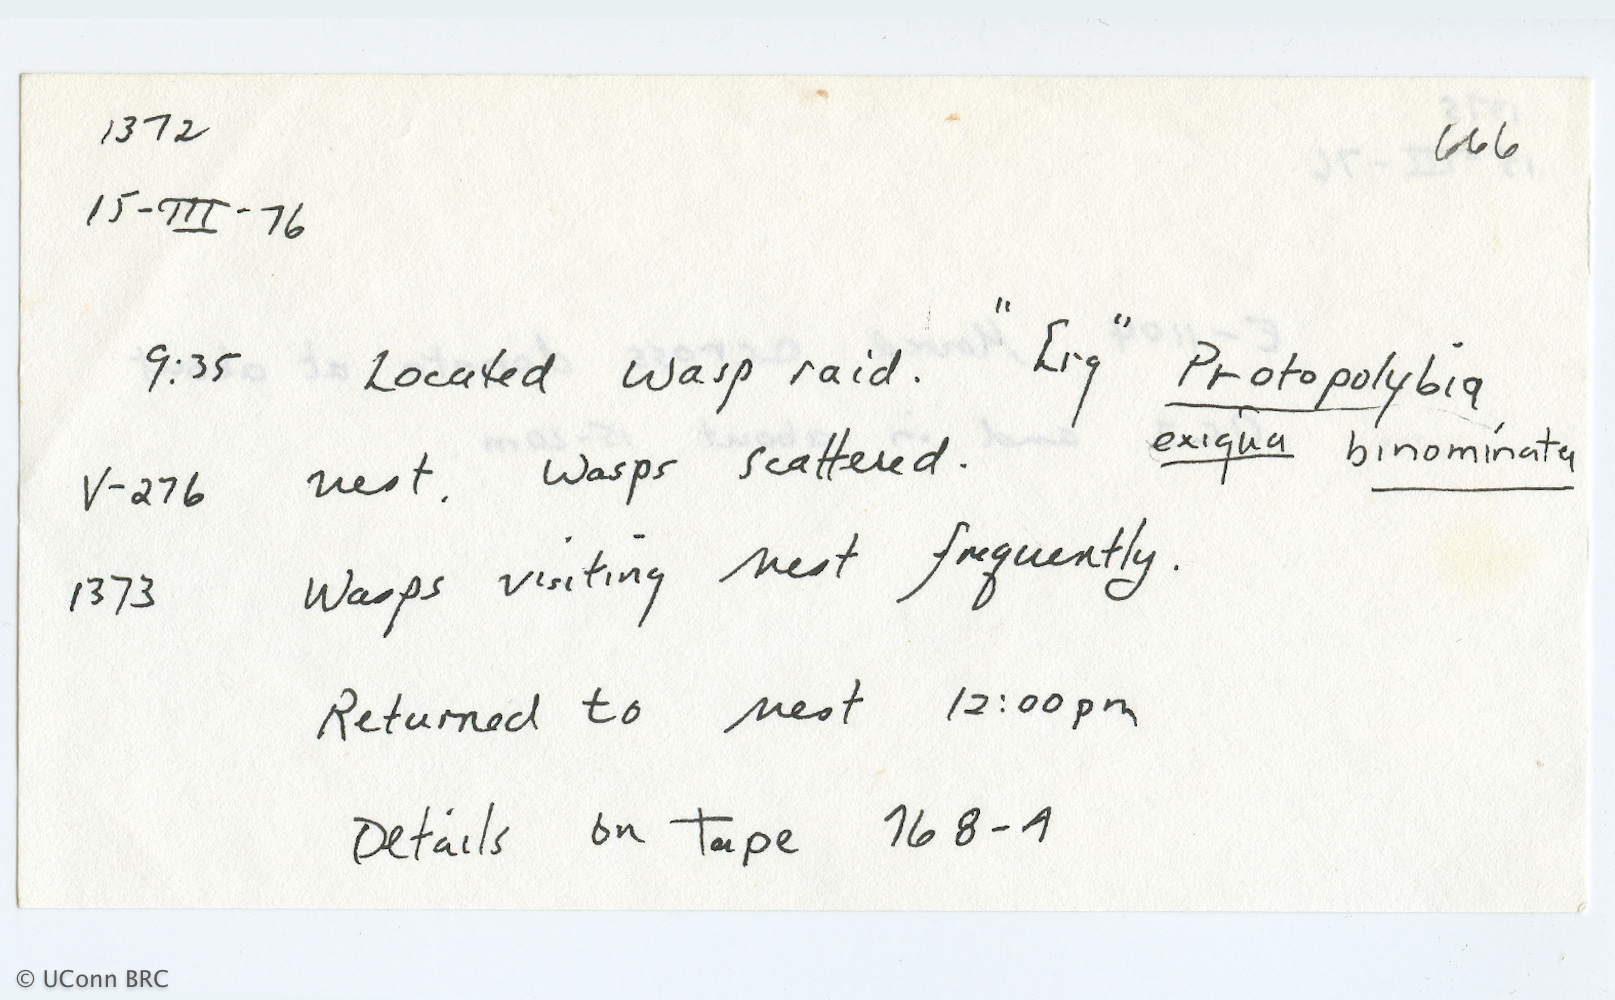 1372
666
15-III-76
9:35 Located wasp raid. "Erg" Protopolybia
exigua binominata
V-276 nest. Wasps scattered.
1373 Wasps visiting nest frequently.
Returned to nest 12:00pm
Details on Tape 76 8-A
© UConn BRC